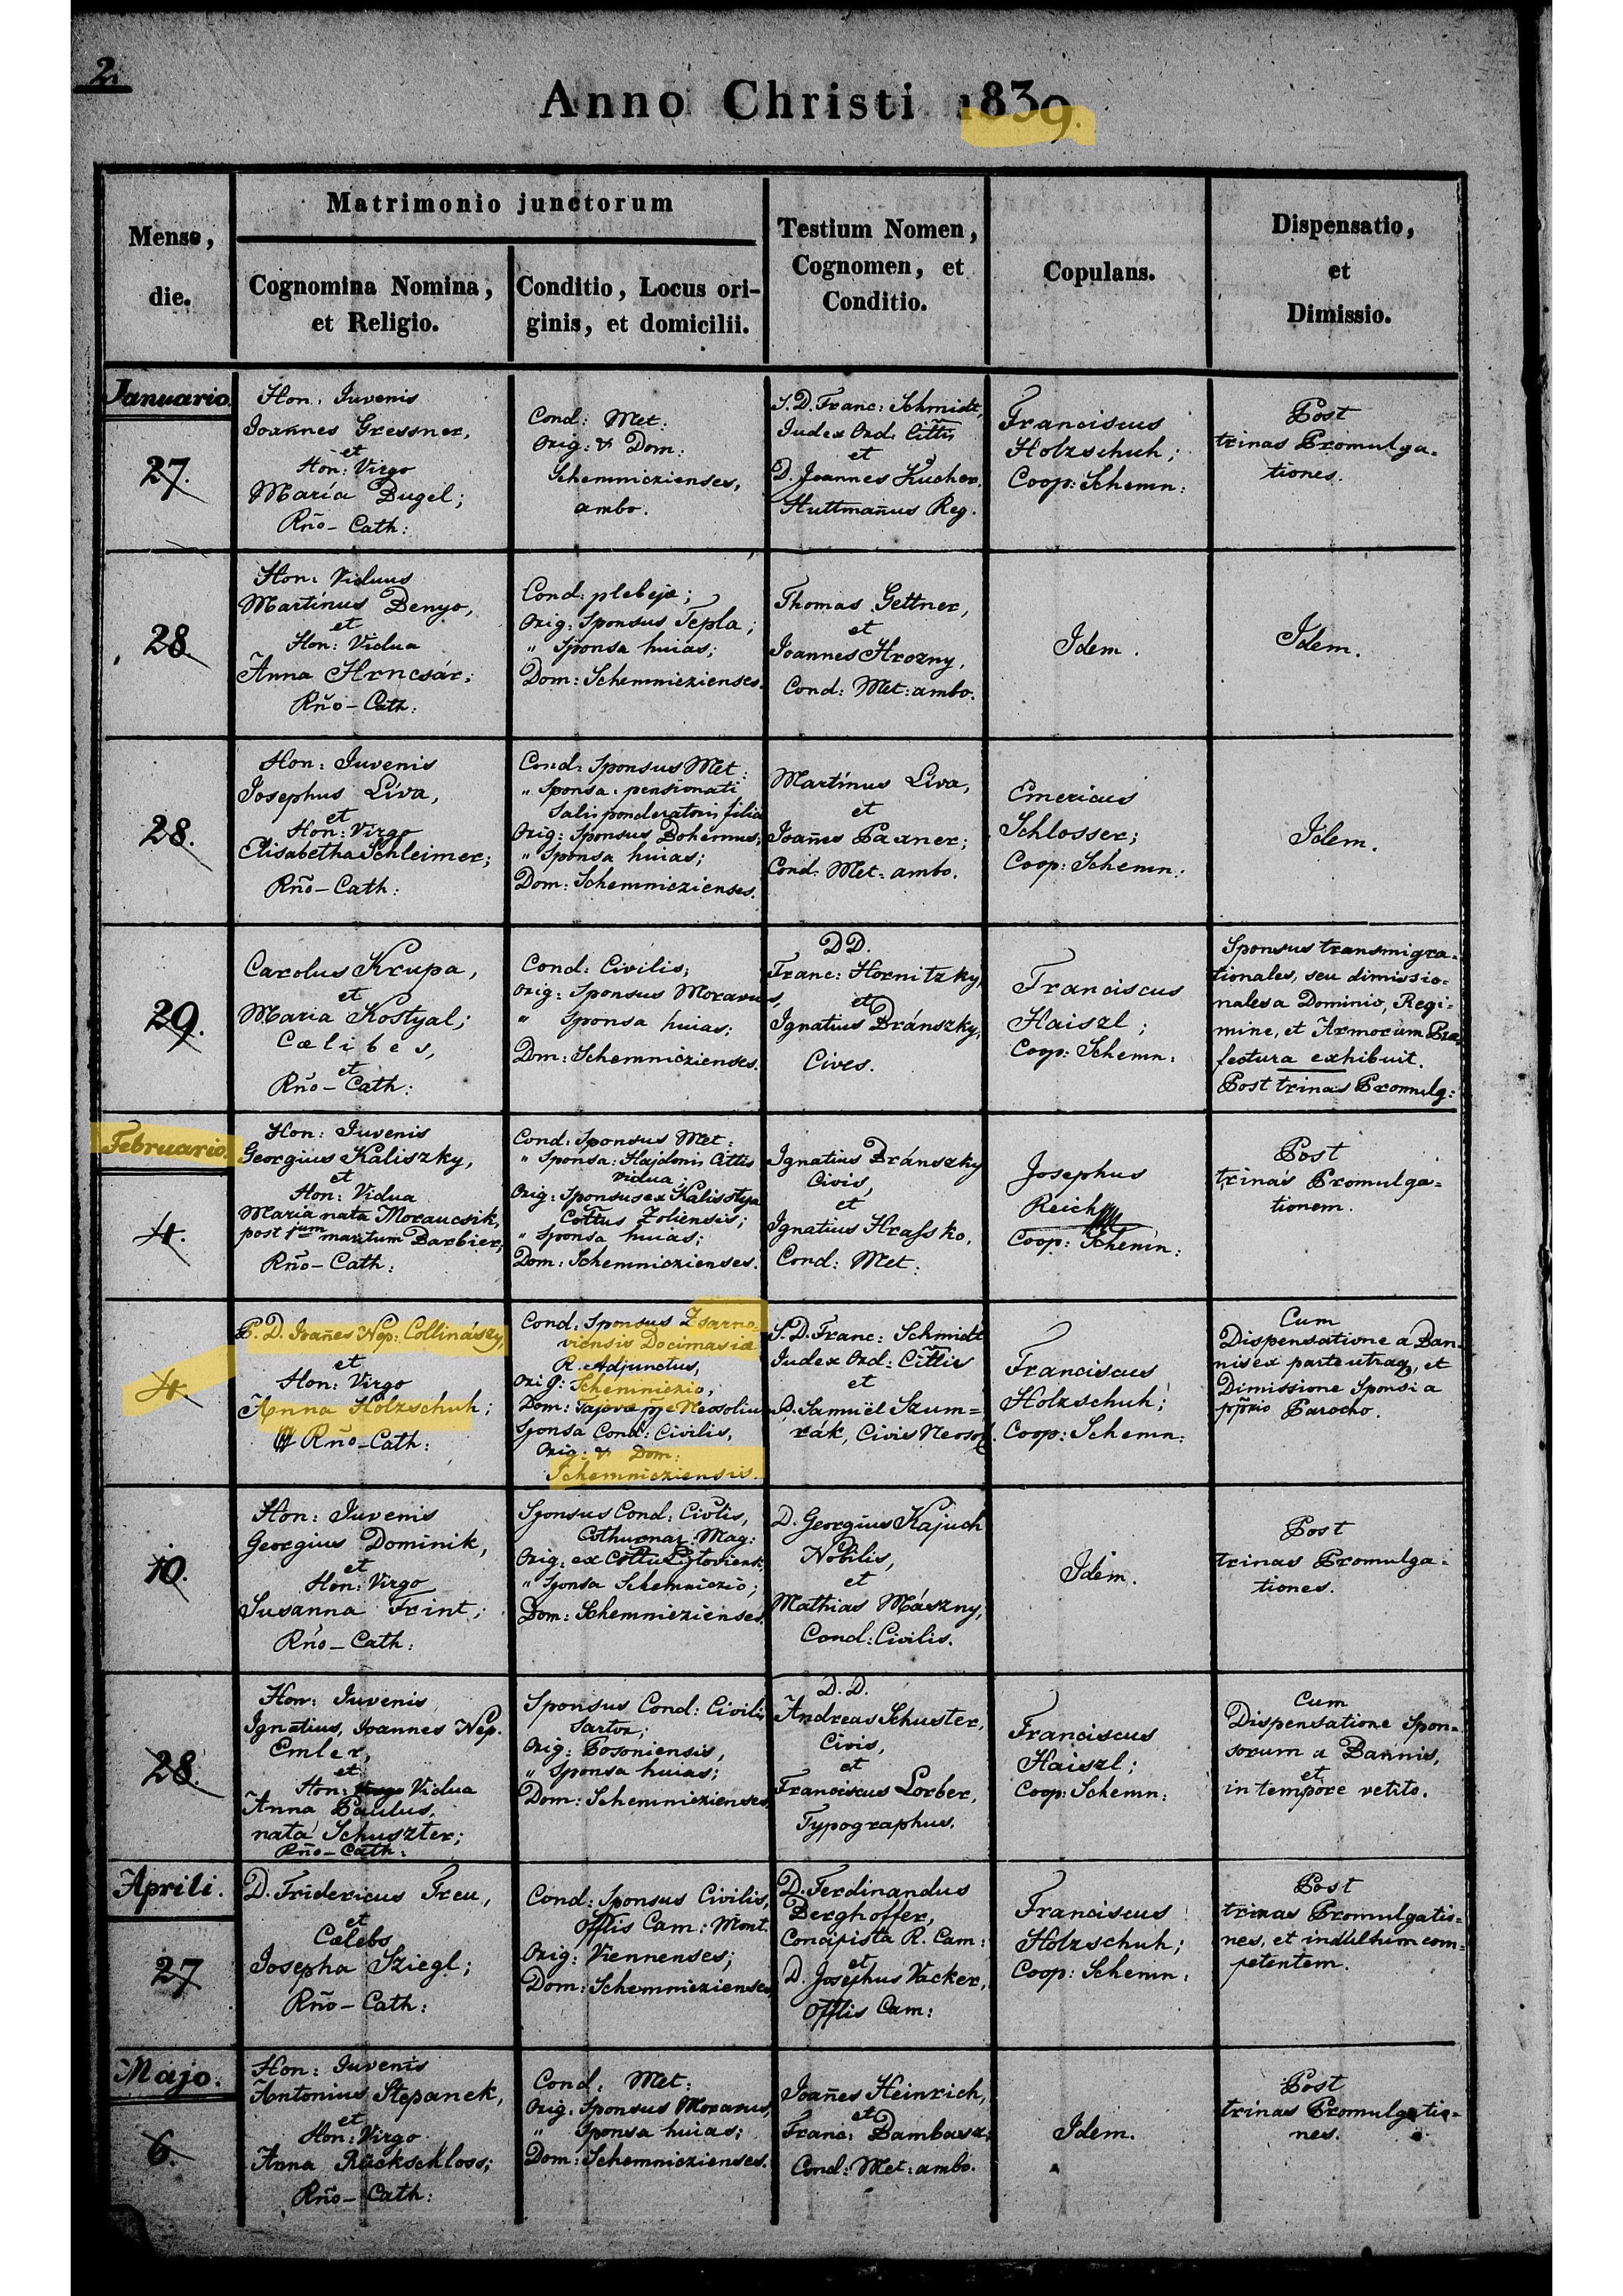 2.
Anno Christi 1839.
Mense,
die.
Matrimonio junctorum
Cognomina Nomina,
et Religio.
Conditio, Locus ori-
ginis, et domicilii.
Testium Nomen,
Cognomen, et
Conditio.
Copulans.
Dispensatio,
et
Dimissio.
Januario.
27.
Hon: Iuvenis
Joannes Gressner,
et
Hon: Virgo
Maria Dugel;
Rño-Cath:
Cond: Met:
Orig: & Dom:
Schemniczienses,
ambo.
S. D. Franc: Schmidt,
Iudex Ord: Cittis
et
D. Joannes Kucher,
Huttmañus Reg.
Franciscus
Holzschuh;
Coop: Schemn:
Post
trinas Promulga-
tiones.
28.
Hon: Viduus
Martinus Denyo,
et
Hon: Vidua
Anna Hrncsár;
Rño-Cath:
Cond: plebejæ;
Orig: Sponsus Tepla;
" Sponsa huias;
Dom: Schemniczienses.
Thomas Gettner,
et
Joannes Hrozny,
Cond: Met: ambo.
Idem.
Idem.
28.
Hon: Iuvenis
Josephus Liva,
et
Hon: Virgo
Elisabetha Schleimer;
Rño-Cath:
Cond: Sponsus Met:
" Sponsa: pensionati
Salis ponderatoris filia
Orig: Sponsus Bohemus;
" Sponsa huias;
Dom: Schemniczienses.
Martinus Liva,
et
Joañes Paxner;
Cond: Met: ambo.
Emericus
Schlosser;
Coop: Schemn:
Idem.
29.
Carolus Krupa,
et
Maria Kostyal;
Cælibes,
et
Rño-Cath:
Cond: Civilis;
Orig: Sponsus Moravus,
" Sponsa huias:
Dom: Schemniczienses.
DD.
Franc: Hornitzky,
et
Ignatius Dránszky,
Cives.
Franciscus
Haiszl;
Coop: Schemn:
Sponsus transmigra-
tionales, seu dimissio-
nales a Dominio, Regi-
mine, et Armorum Præ-
fectura exhibuit.
Post trinas Promulg:
Februario.
4.
Hon: Iuvenis
Georgius Kaliszky,
et
Hon: Vidua
Maria nata Moraucsik,
post 1um maritum Barbier;
Rño-Cath:
Cond: Sponsus Met:
" Sponsa: Hajdonis Cittis
vidua;
Orig: Sponsus ex Kalisstya
Cottus Zoliensis;
" Sponsa huias;
Dom: Schemniczienses.
Ignatius Dránszky
Civis,
et
Ignatius Hrassko,
Cond: Met:
Josephus
Reich
Coop: Schemn:
Post
trinas Promulga-
tionem.
4.
P. D. Joañes Nep: Collinászy,
et
Hon: Virgo
Anna Holzschuh;
Rño-Cath:
Cond: Sponsus Zsarno-
viensis Docimasiæ
R. Adjunctus,
Orig: Schemniczio,
Dom: Sajova Neosolium
Sponsa Cond: Civilis,
Orig: & Dom:
Schemnicziensis.
S. D. Franc: Schmidt
Iudex Ord: Cittis
et
D. Samuël Szum=
rák, Civis Neosol.
Franciscus
Holzschuh;
Coop: Schemn:
Cum
Dispensatione a Ban-
nis ex parte utraq, et
Dimissione Sponsi a
pprio Parocho.
10.
Hon: Iuvenis
Georgius Dominik,
et
Hon: Virgo
Susanna Frint;
Rño-Cath:
Sponsus Cond: Civlis,
Cothurnar: Mag:
Orig: ex Cottu Lyptoviensi,
" Sponsa Schemniczio;
Dom: Schemniczienses.
D. Georgius Kajuch
Nobilis,
et
Mathias Mászny,
Cond: Civilis.
Idem.
Post
trinas Promulga-
tiones.
28.
Hon: Iuvenis
Ignatius, Joannes Nep.
Emler,
et
Hon: Vidua
Anna Paulus,
nata Schuszter;
Rño-Cath:
Sponsus Cond: Civilis
Sartor;
Orig: Posoniensis,
" Sponsa huias;
Dom: Schemniczienses
D. D.
Andreas Schuster,
Civis,
et
Franciscus Lorber,
Typographus.
Franciscus
Haiszl;
Coop: Schemn:
Cum
Dispensatione Spon-
sorum a Bannis,
et
in tempore vetito.
Aprili.
27
D. Fridericus Freu,
et
Cælebs
Josepha Sziegl;
Rño-Cath:
Cond: Sponsus Civilis,
Offlis Cam: Mont.
Orig: Viennenses;
Dom: Schemniczienses
D. Ferdinandus
Berghoffer,
Concipista R. Cam:
et
D. Josephus Vacker,
Offlis Cam:
Franciscus
Holzschuh;
Coop: Schemn:
Post
trinas Promulgatio-
nes, et indultum com-
petentem.
Majo.
6.
Hon: Iuvenis
Antonius Stepanek,
et
Hon: Virgo
Anna Ruckschloss;
Rño-Cath:
Cond: Met:
Orig: Sponsus Moravus,
" Sponsa huias;
Dom: Schemniczienses.
Joañes Heinrich,
et
Franc: Bambasz;
Cond: Met: ambo.
Idem.
Post
trinas Promulgatio-
nes.